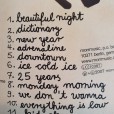 1. beautiful night
2. dictionary
3. new year
4. adrenaline
5. downtown
6. ice cold ice
7. 25 years
8. monday morning
9. we don't wanna
10. everything is low